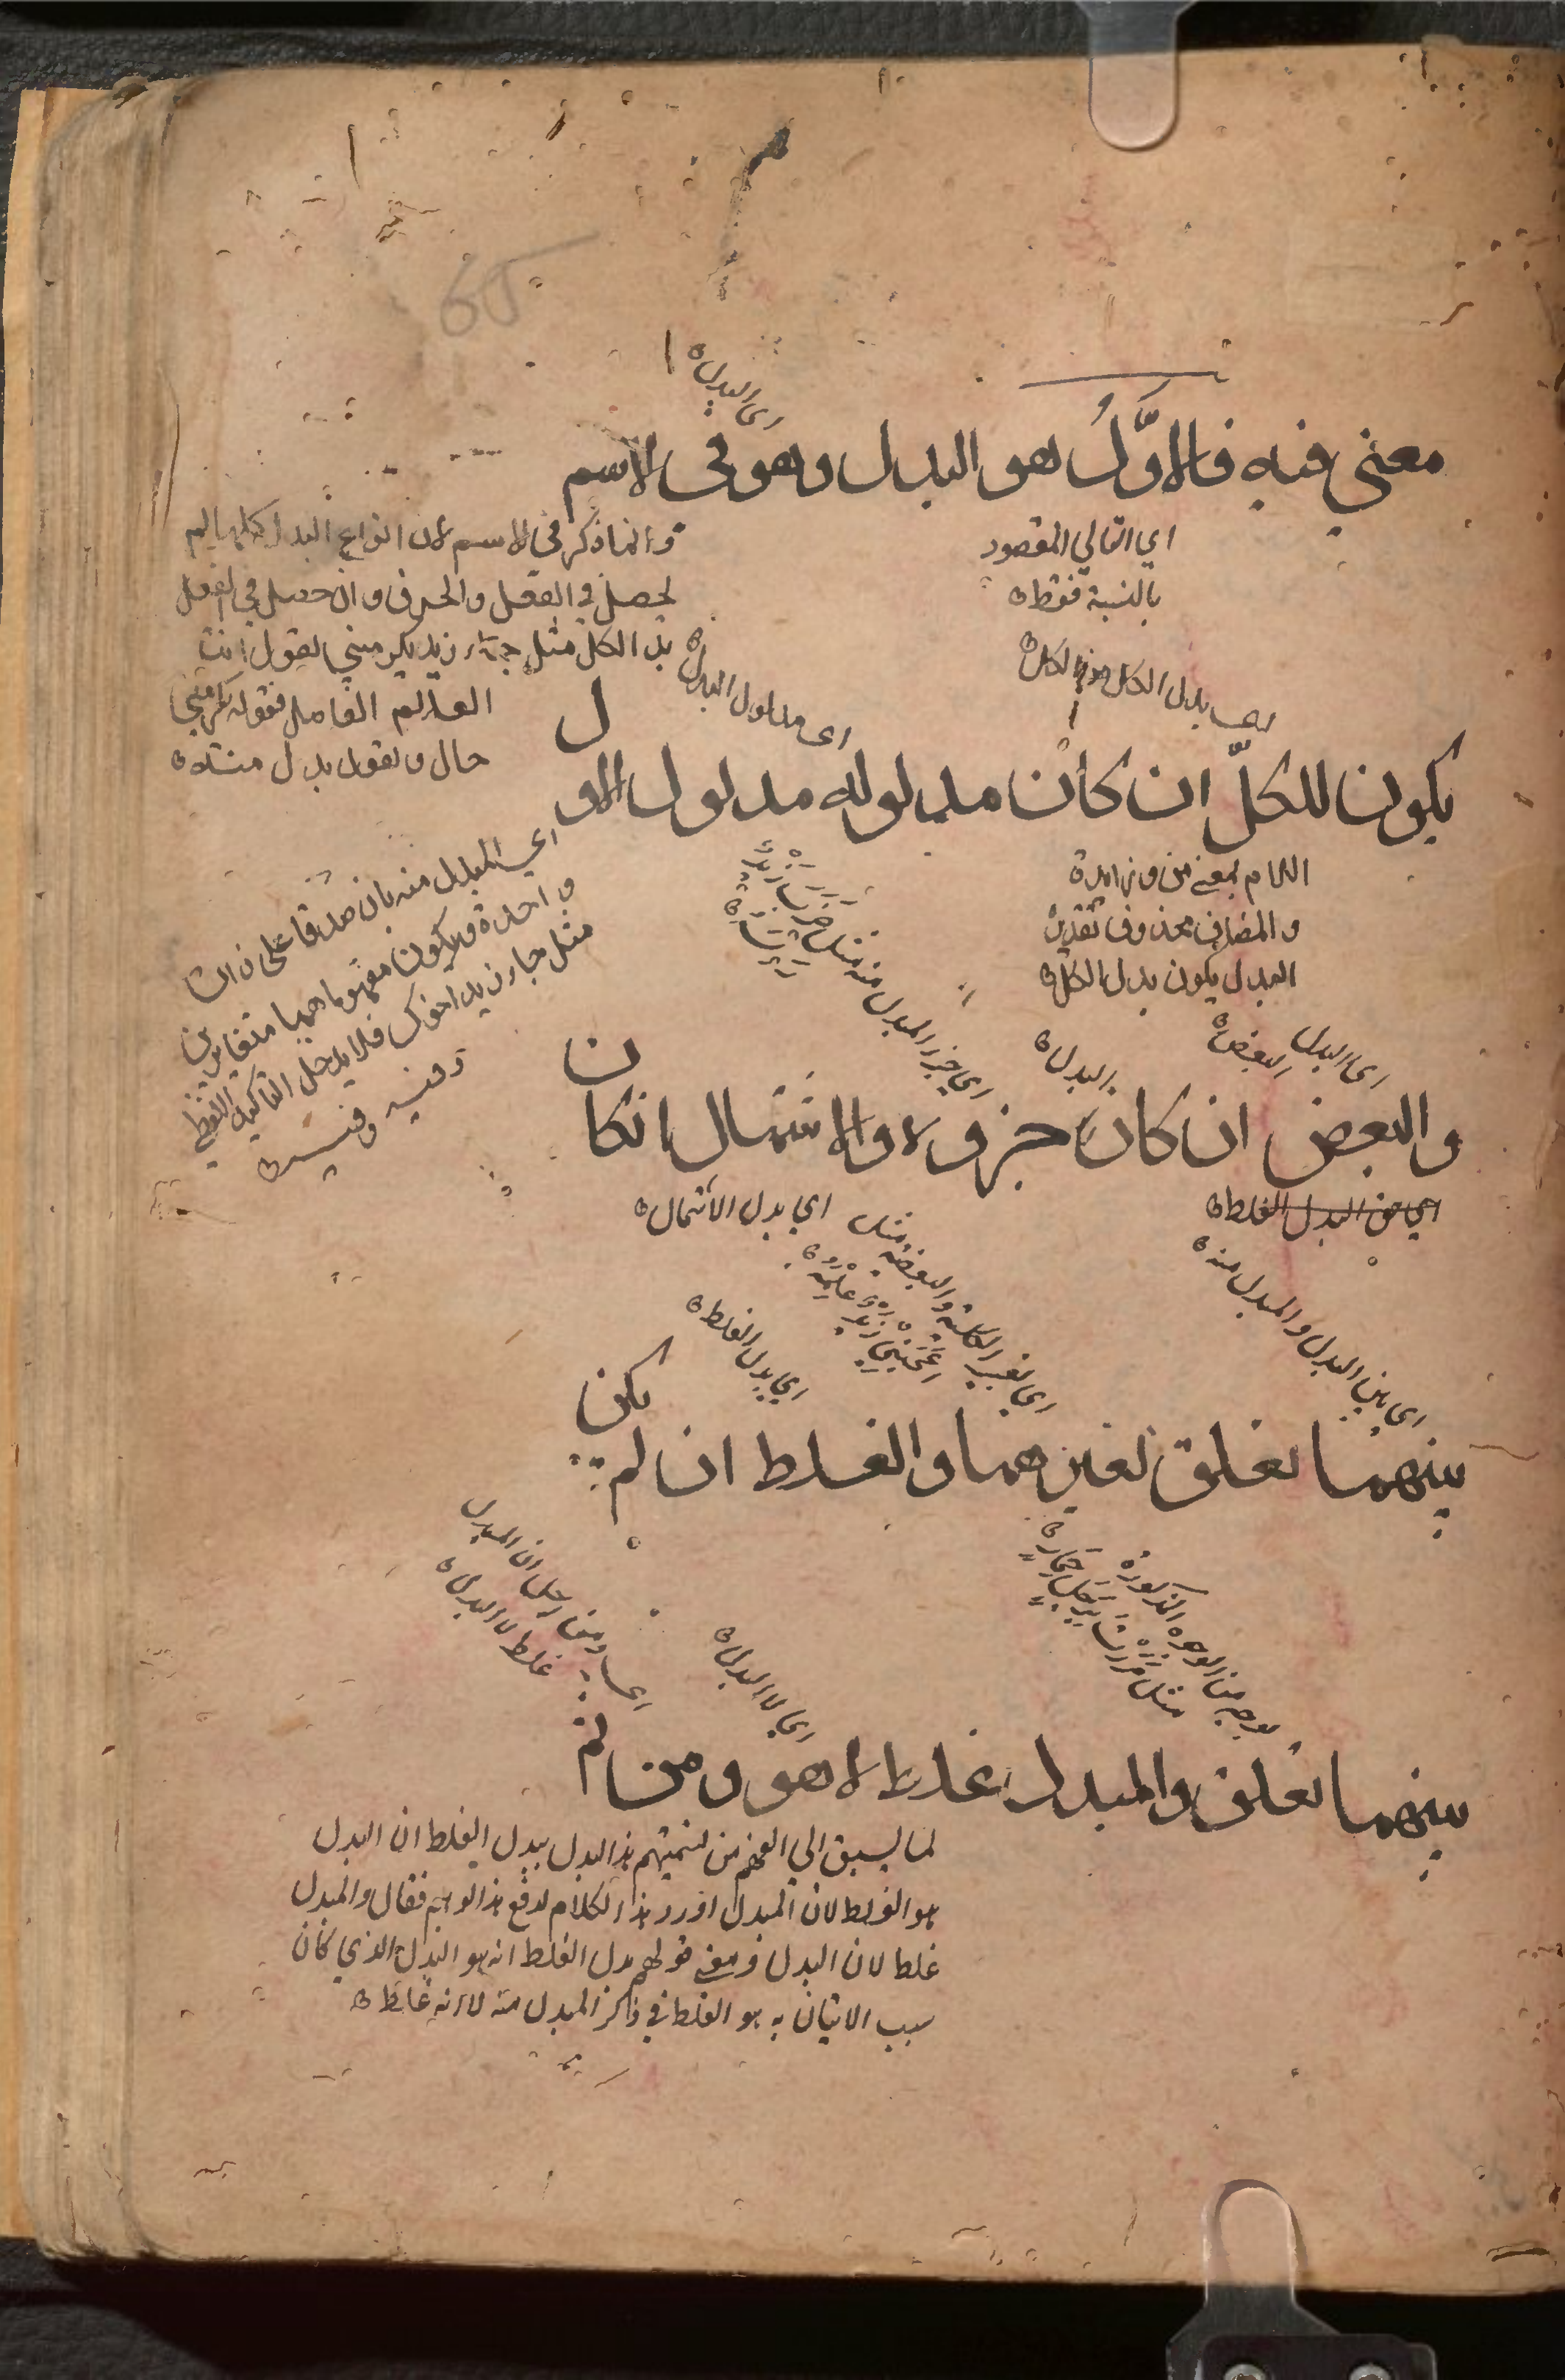 اي البدل
معني فيه فالاوّلُ هو البدل وهو في الاسم
اي التالي المقصود
بالنسبة فقط
وانما ذكر في الاسم لان انواع البدل كلها لم
يحصل في الفعل والحرف وان حصل في الفعل
بدل الكل مثل جاء زيد يكرمني يقول انت
العالم الفاضل فقوله يكرمني
حال ويقول بدل منه
اي بدل الكل من الكل
اي مدلول البدل
يكون للكلّ ان كان مدلوله مدلول الاول
اللام بمعني من زائدة
والمضاف محذوف تقديره
البدل يكون بدل الكل
اي المبدل منه بان صدقا على ذات
واحدة ويكون مفهوماهما متغايرين
مثل جاء زيد اخوك فلا يدخل التاكيد اللفظي
وفيه
اي جزء المبدل منه مثل ضربت زيدا
اي البدل
البعض
البدل
والبعض ان كان جزوه والاشتمال انكان
اي من البدل الغلط
اي بين البدل والمبدل منه
اي بدل الاشتمال
اي بغير الكلية والبعضية مثل
اعجبني زيد علمه
اي بدل الغلط
بينهما تعلق بغيرهما والغلط ان لم يكن
بوجه من الوجوه المذكورة
مثل مررت برجل حمار
اي لا البدل
اي ومن اجل ان المبدل
غلط لا البدل
بينهما تعلق والمبدل غلط لا هو ومن ثم
لما يسبق الي الفهم من تسميتهم هذا البدل ببدل الغلط ان البدل
هو الغلط لان المبدل اورد هذا الكلام لدفع هذا الوهم فقال والمبدل
غلط لان البدل ومعني قولهم بدل الغلط انه هو البدل الذي كان
سبب الاتيان به هو الغلط في ذكر المبدل منه لا انه غلط